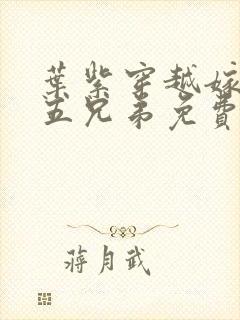 葉紫穿越嫁
五兄弟免費
蔣月武